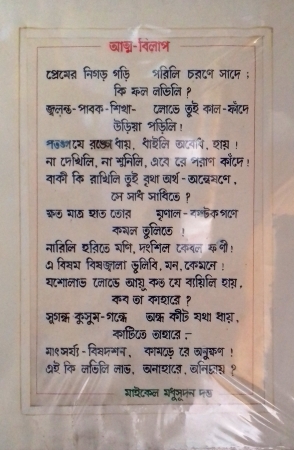 আত্ম-বিলাপ
প্রেমের নিগড় গড়ি পরিলি চরণে সাদে ;
কি ফল লভিলি ?
জ্বলন্ত-পাবক-শিখা- লোভে তুই কাল-ফাঁদে
উড়িয়া পড়িলি !
পতঙ্গ যে রঙ্গে ধায়, ধাইলি অবোধ, হায় !
না দেখিলি, না শুনিলি, এবে রে পরাণ কাঁদে !
বাকী কি রাখিলি তুই বৃথা অর্থ-অন্বেষণে,
সে সাধ সাধিতে ?
ক্ষত মাত্র হাত তোর মৃণাল-কণ্টকগণে
কমল তুলিতে !
নারিলি হরিতে মণি, দংশিল কেবল ফণী !
এ বিষম বিষজ্বালা ভুলিবি, মন, কেমনে !
যশোলাভ লোভে আয়ু কত যে ব্যয়িলি হায়,
কব তা কাহারে ?
সুগন্ধ কুসুম-গন্ধে অন্ধ কীট যথা ধায়,
কাটিতে তাহারে,-
মাৎসর্য্য-বিষদশন, কামড়ে রে অনুক্ষণ !
এই কি লভিলি লাভ, অনাহারে, অনিদ্রায় ?
মাইকেল মধুসূদন দত্ত